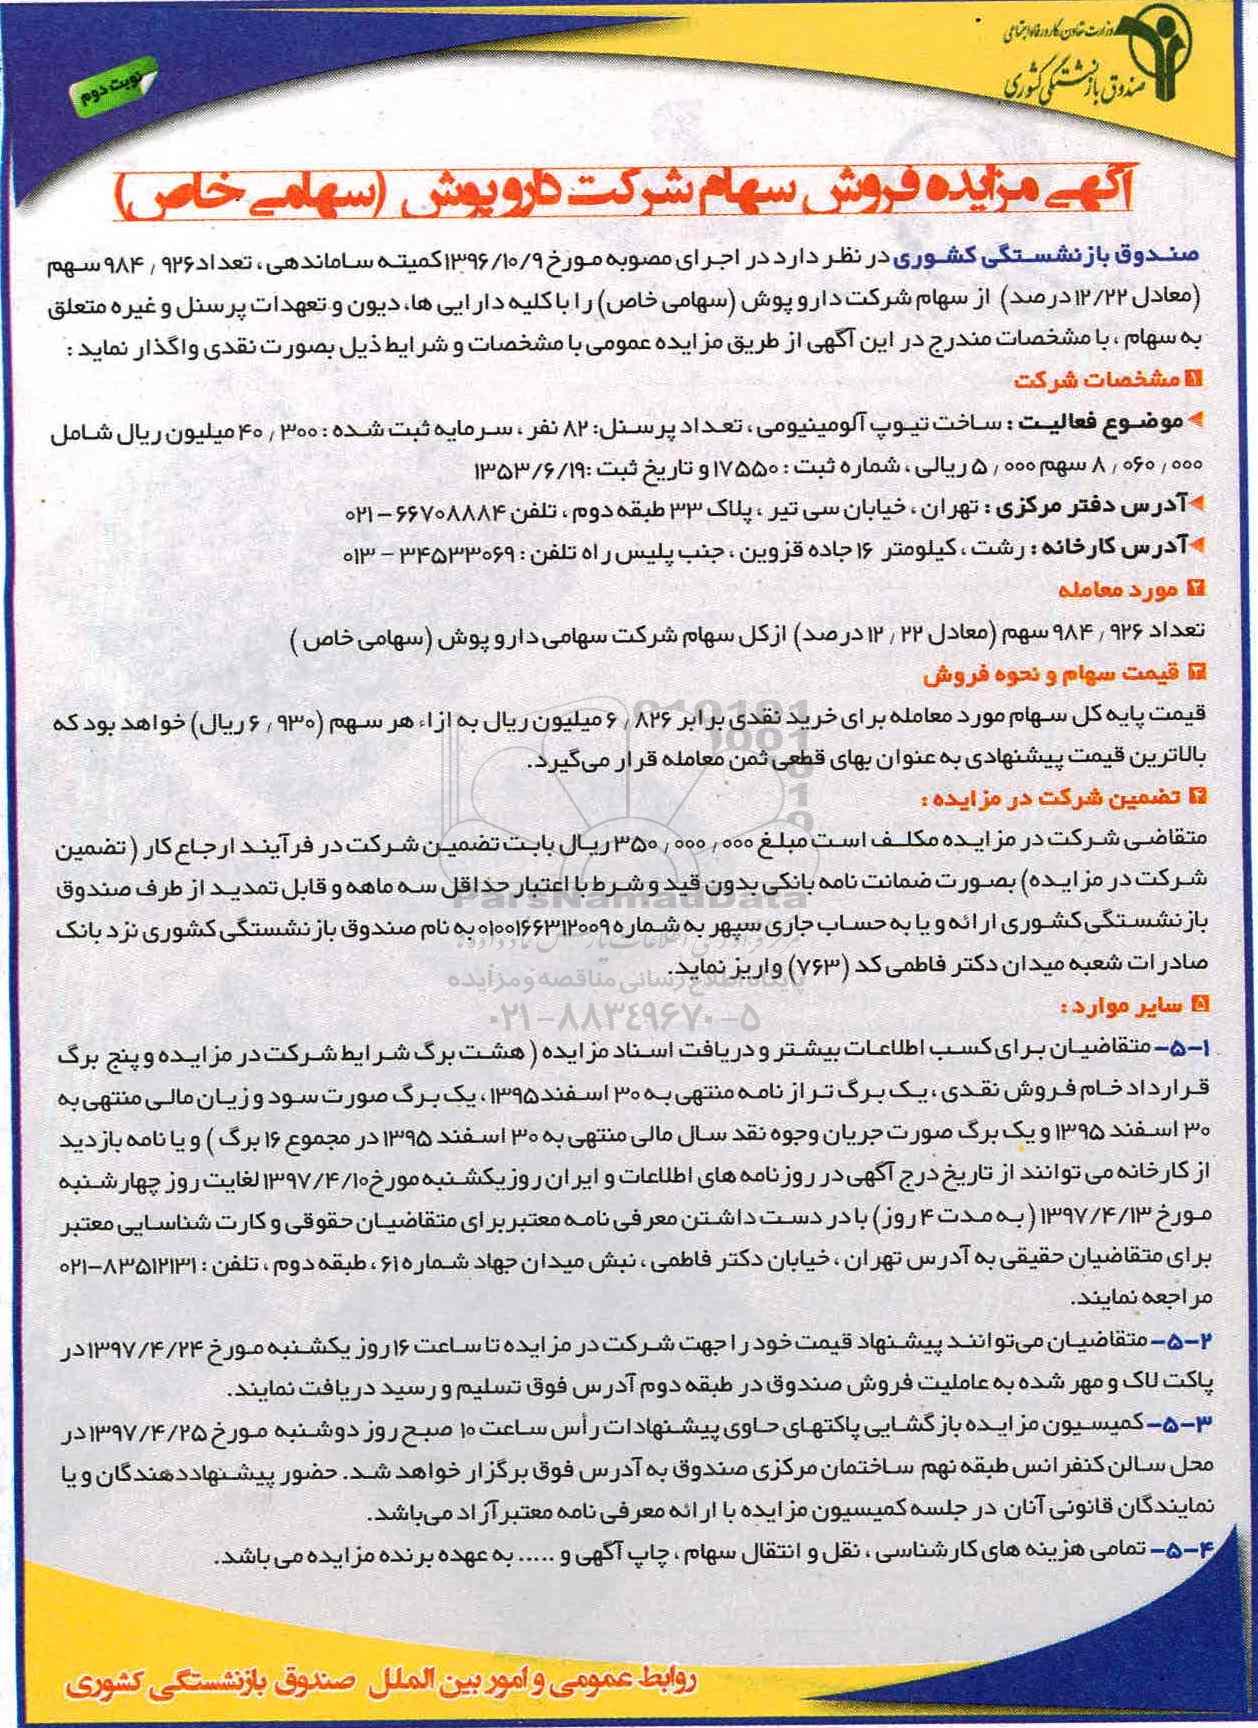 وزارت تعاون، کار و رفاه اجتماعی
صندوق بازنشستگی کشوری
نوبت دوم
آگهی مزایده فروش سهام شرکت دارو پوش (سهامی خاص)
صندوق بازنشستگی کشوری در نظر دارد در اجرای مصوبه مورخ ۱۳۹۶/۱۰/۹ کمیته ساماندهی، تعداد ۹۸۴٫۹۲۶ سهم
(معادل ۱۲/۲۲ درصد) از سهام شرکت دارو پوش (سهامی خاص) را با کلیه دارایی ها، دیون و تعهدات پرسنل و غیره متعلق
به سهام، با مشخصات مندرج در این آگهی از طریق مزایده عمومی با مشخصات و شرایط ذیل بصورت نقدی واگذار نماید:
۱ مشخصات شرکت
موضوع فعالیت: ساخت تیوپ آلومینیومی، تعداد پرسنل: ۸۲ نفر، سرمایه ثبت شده: ۴۰٫۳۰۰ میلیون ریال شامل
۸٫۰۶۰٫۰۰۰ سهم ۵٫۰۰۰ ریالی، شماره ثبت: ۱۷۵۵۰ و تاریخ ثبت: ۱۳۵۳/۶/۱۹
آدرس دفتر مرکزی: تهران، خیابان سی تیر، پلاک ۳۳ طبقه دوم، تلفن ۶۶۷۰۸۸۸۴-۰۲۱
آدرس کارخانه: رشت، کیلومتر ۱۶ جاده قزوین، جنب پلیس راه تلفن: ۳۴۵۳۳۰۶۹ - ۰۱۳
۲ مورد معامله
تعداد ۹۸۴٫۹۲۶ سهم (معادل ۱۲٫۲۲ درصد) از کل سهام شرکت سهامی دارو پوش (سهامی خاص)
۳ قیمت سهام و نحوه فروش
قیمت پایه کل سهام مورد معامله برای خرید نقدی برابر ۶٫۸۲۶ میلیون ریال به ازاء هر سهم (۶٫۹۳۰ ریال) خواهد بود که
بالاترین قیمت پیشنهادی به عنوان بهای قطعی ثمن معامله قرار می‌گیرد.
۴ تضمین شرکت در مزایده:
متقاضی شرکت در مزایده مکلف است مبلغ ۳۵۰٫۰۰۰٫۰۰۰ ریال بابت تضمین شرکت در فرآیند ارجاع کار (تضمین
شرکت در مزایده) بصورت ضمانت نامه بانکی بدون قید و شرط با اعتبار حداقل سه ماهه و قابل تمدید از طرف صندوق
بازنشستگی کشوری ارائه و یا به حساب جاری سپهر به شماره ۰۱۰۰۱۶۶۳۱۲۰۰۹ به نام صندوق بازنشستگی کشوری نزد بانک
صادرات شعبه میدان دکتر فاطمی کد (۷۶۳) واریز نماید.
ParsNamadData
پایگاه اطلاع رسانی مناقصه و مزایده
۰۲۱-۸۸۳۴۹۶۷۰-۵
۵ سایر موارد:
۵-۱- متقاضیان برای کسب اطلاعات بیشتر و دریافت اسناد مزایده (هشت برگ شرایط شرکت در مزایده و پنج برگ
قرارداد خام فروش نقدی، یک برگ تراز نامه منتهی به ۳۰ اسفند ۱۳۹۵، یک برگ صورت سود و زیان مالی منتهی به
۳۰ اسفند ۱۳۹۵ و یک برگ صورت جریان وجوه نقد سال مالی منتهی به ۳۰ اسفند ۱۳۹۵ در مجموع ۱۶ برگ) و یا نامه بازدید
از کارخانه می توانند از تاریخ درج آگهی در روزنامه های اطلاعات و ایران روز یکشنبه مورخ ۱۳۹۷/۴/۱۰ لغایت روز چهارشنبه
مورخ ۱۳۹۷/۴/۱۳ (به مدت ۴ روز) با در دست داشتن معرفی نامه معتبر برای متقاضیان حقوقی و کارت شناسایی معتبر
برای متقاضیان حقیقی به آدرس تهران، خیابان دکتر فاطمی، نبش میدان جهاد شماره ۶۱، طبقه دوم، تلفن: ۸۳۵۱۲۱۳۱-۰۲۱
مراجعه نمایند.
۵-۲- متقاضیان می‌توانند پیشنهاد قیمت خود را جهت شرکت در مزایده تا ساعت ۱۶ روز یکشنبه مورخ ۱۳۹۷/۴/۲۴ در
پاکت لاک و مهر شده به عاملیت فروش صندوق در طبقه دوم آدرس فوق تسلیم و رسید دریافت نمایند.
۵-۳- کمیسیون مزایده بازگشایی پاکتهای حاوی پیشنهادات رأس ساعت ۱۰ صبح روز دوشنبه مورخ ۱۳۹۷/۴/۲۵ در
محل سالن کنفرانس طبقه نهم ساختمان مرکزی صندوق به آدرس فوق برگزار خواهد شد. حضور پیشنهاددهندگان و یا
نمایندگان قانونی آنان در جلسه کمیسیون مزایده با ارائه معرفی نامه معتبر آزاد می‌باشد.
۵-۴- تمامی هزینه های کارشناسی، نقل و انتقال سهام، چاپ آگهی و ..... به عهده برنده مزایده می باشد.
روابط عمومی و امور بین الملل صندوق بازنشستگی کشوری